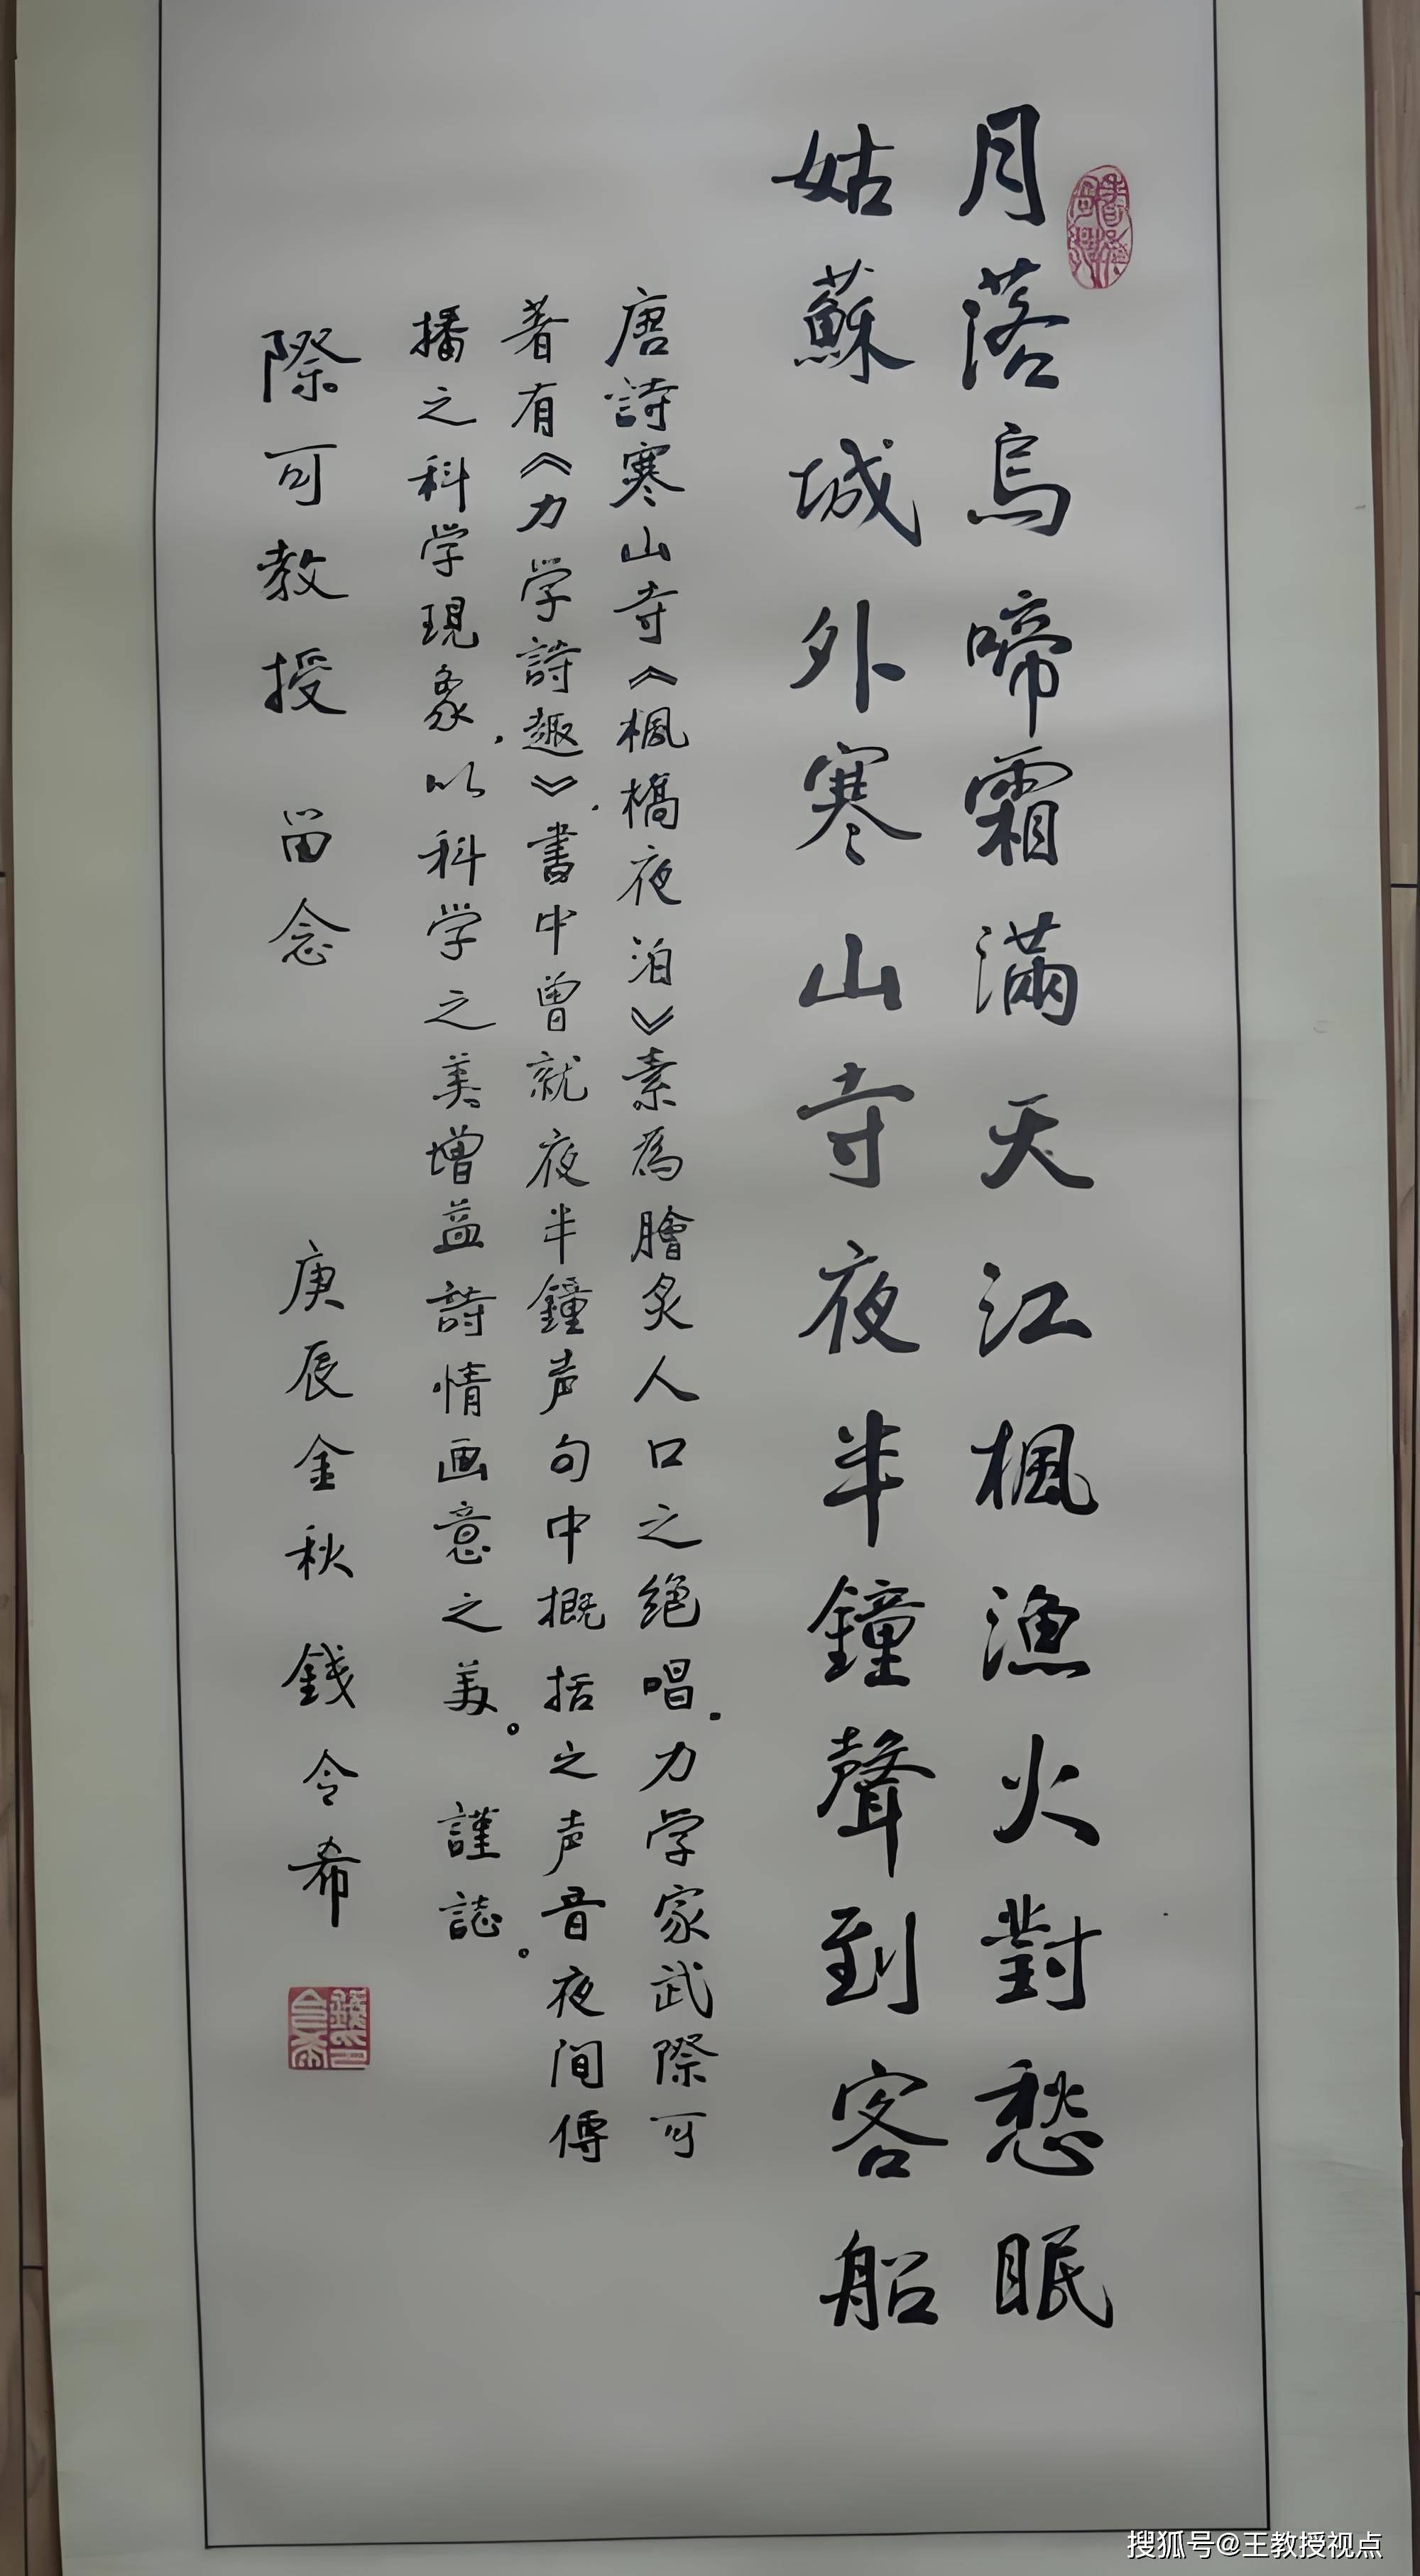 月落烏啼霜滿天江楓漁火對愁眠
姑蘇城外寒山寺夜半鐘聲到客船
唐詩寒山寺《楓橋夜泊》素為膾炙人口之絕唱.力学家武際可
著有《力学詩趣》,書中曾就夜半鐘声句中概括之声音夜间傳
播之科学現象,以科学之美增益詩情画意之美。謹誌。
際可教授 留念 庚辰金秋 錢令希
搜狐号@王教授视点